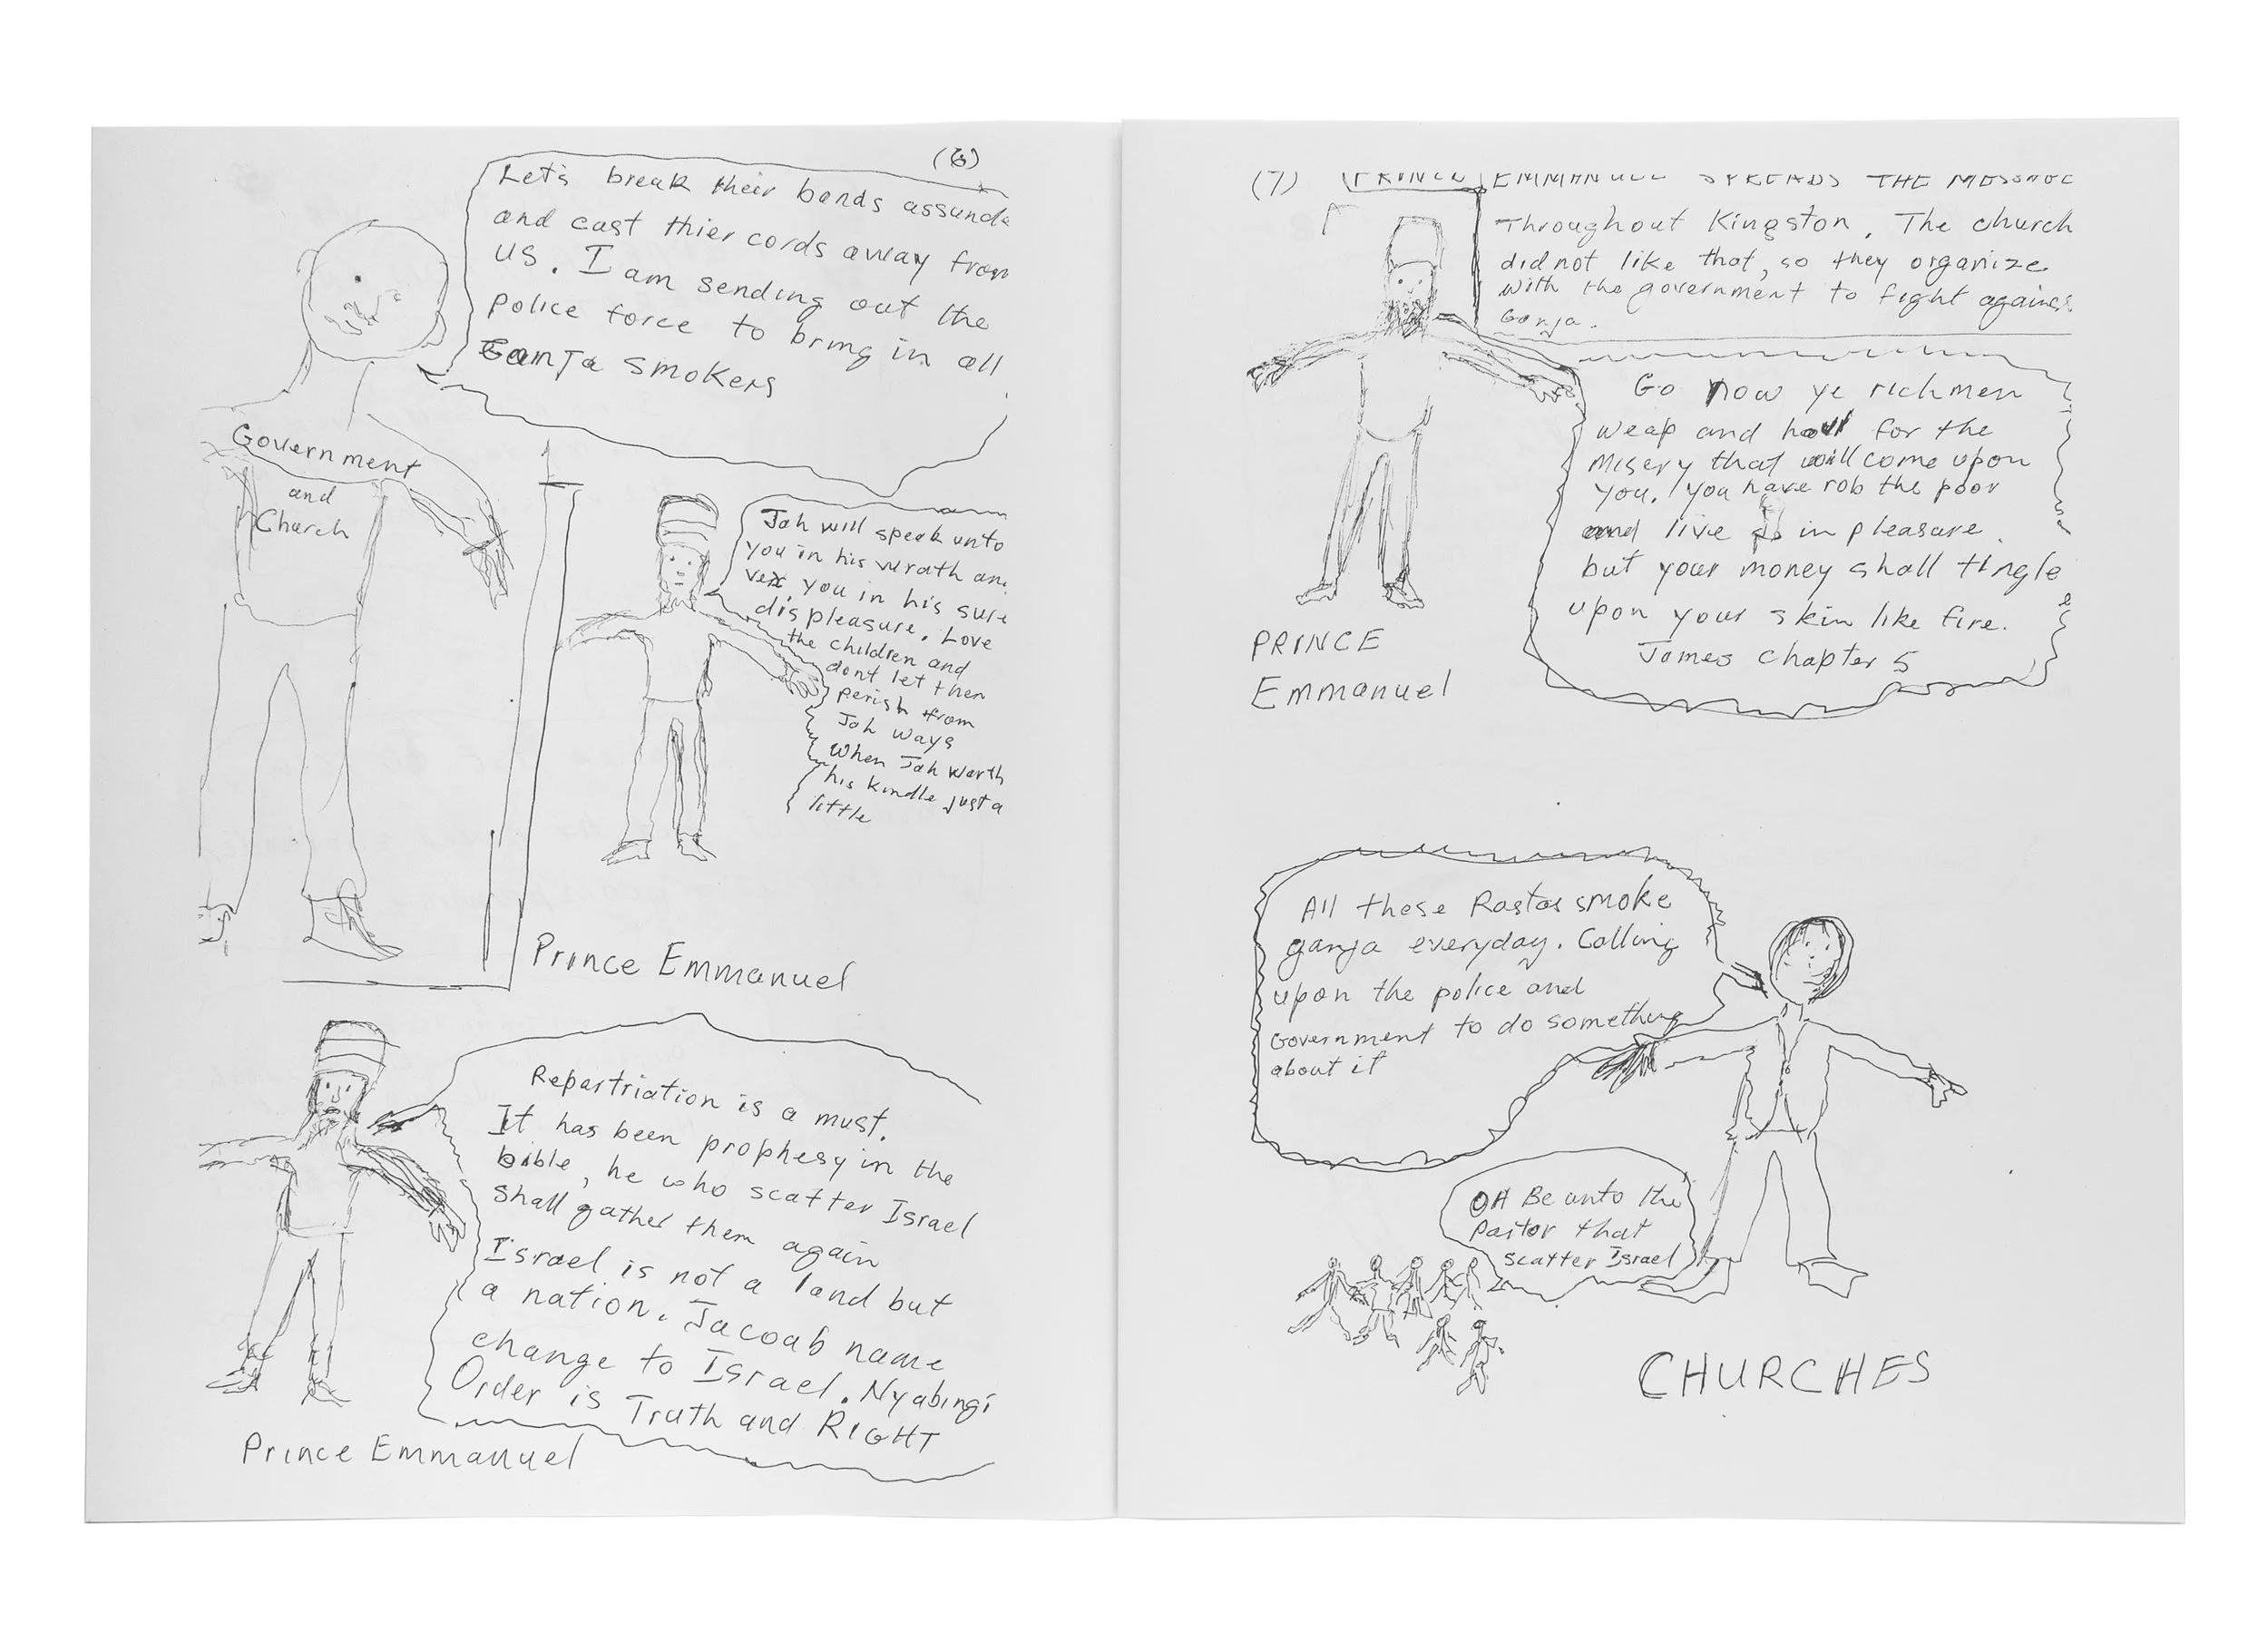 (6)
Let's break their bands assunde
and cast thier cords away from
us. I am sending out the
police force to bring in all
Ganja smokers
Government
and
Church
Jah will speak unto
you in his wrath an
vex you in his sure
displeasure. Love
the children and
dont let them
perish from
Jah ways
When Jah warth
his kindle just a
little
Prince Emmanuel
Repartriation is a must.
It has been prophesy in the
bible, he who scatter Israel
shall gather them again
Israel is not a land but
a nation. Jacoab name
change to Israel. Nyabingi
Order is Truth and RIGHT
Prince Emmanuel
(7) PRINCE EMMANUEL SPREADS THE MESSAGE
Throughout Kingston. The church
did not like that, so they organize
with the government to fight agains
Ganja.
Go now ye richmen
weap and howl for the
misery that will come upon
you. you have rob the poor
and live in pleasure
but your money shall tingle
upon your skin like fire.
James chapter 5
PRINCE
Emmanuel
All these Rastas smoke
ganja everyday. Calling
upon the police and
Government to do something
about it
OH Be unto the
Pastor that
scatter Israel
CHURCHES